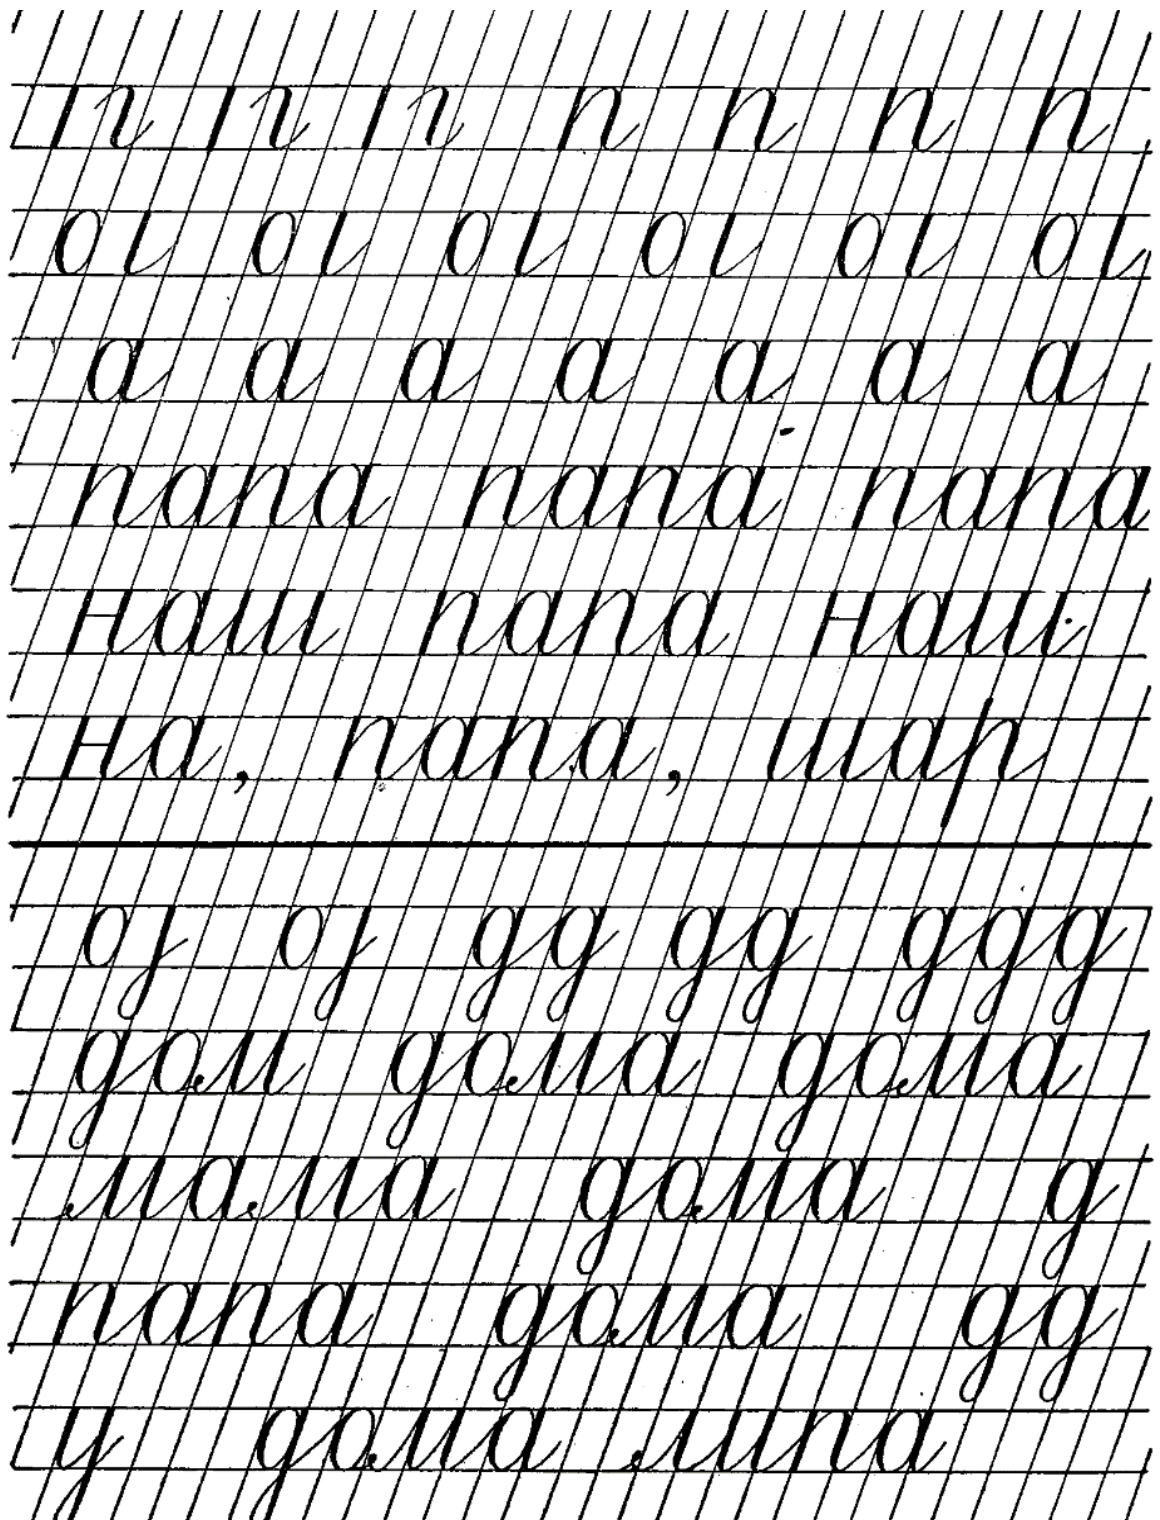 п п п п
а а а а а а а
папа папа папа
наш папа наш
на, папа, шар
д д д д д д д
дом дома дома
мама дома д
папа дома д д
у дома липа